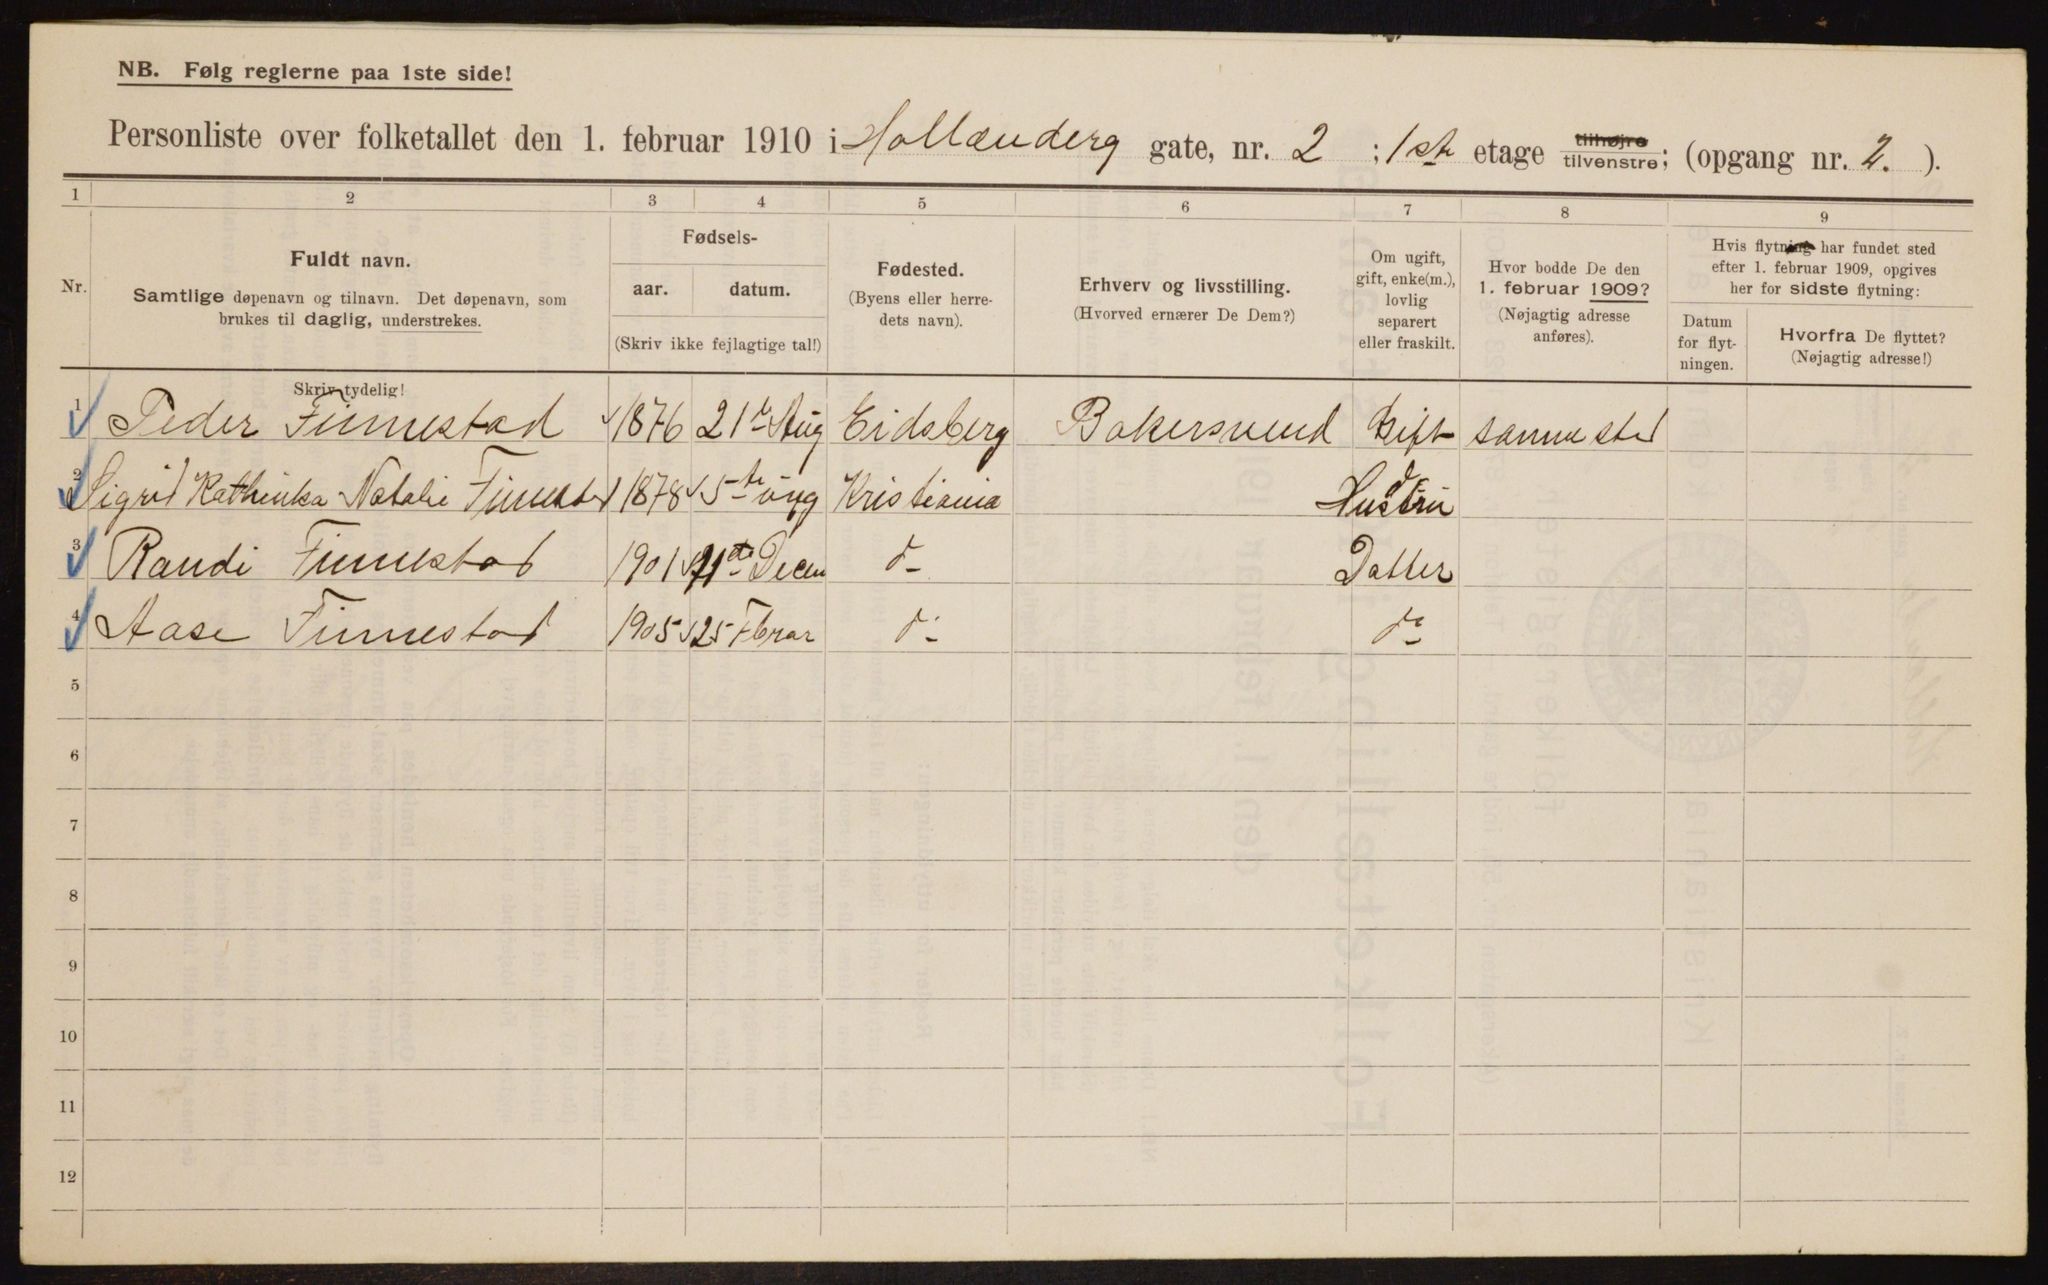 NB. Følg reglerne paa 1ste side!
Personliste over folketallet den 1. februar 1910 i Hollænderg gate, nr. 2 ; 1st etage tilhøjre tilvenstre; (opgang nr. 2. ).
1 2 3 4 5 6 7 8 9
Nr.
Fuldt navn.
Samtlige døpenavn og tilnavn. Det døpenavn, som
brukes til daglig, understrekes.
Skriv tydelig!
Fødsels-
aar. datum.
(Skriv ikke fejlagtige tal!)
Fødested.
(Byens eller herre-
dets navn).
Erhverv og livsstilling.
(Hvorved ernærer De Dem?)
Om ugift,
gift, enke(m.),
lovlig
separert
eller fraskilt.
Hvor bodde De den
1. februar 1909?
(Nøjagtig adresse
anføres).
Hvis flytning har fundet sted
efter 1. februar 1909, opgives
her for sidste flytning:
Datum
for flyt-
ningen.
Hvorfra De flyttet?
(Nøjagtig adresse!)
1 Peder Finnestad 1876 21d Aug Eidsberg Bakersvend Gift samme sted
2 Sigrid Kathinka Natalie Finnestad 1878 5te Kristiania Hustru
3 Randi Finnestad 1901 Decem do Datter
4 Aase Finnestad 1905 25 Febrar do do
5
6
7
8
9
10
11
12